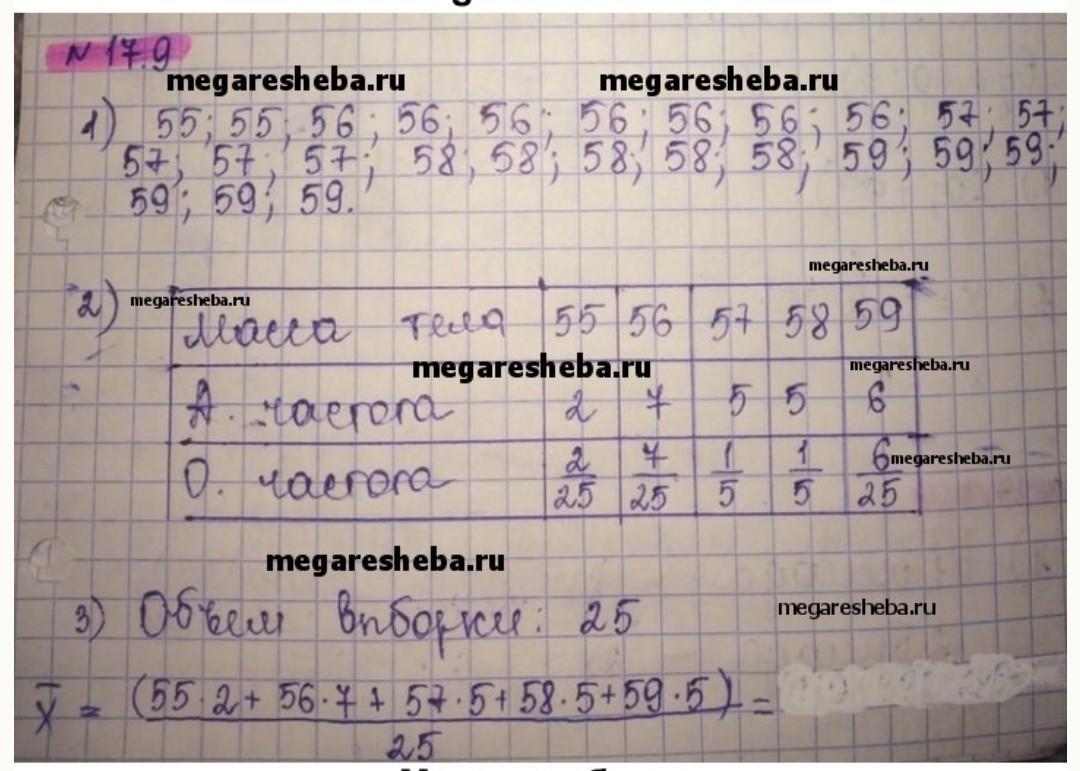 № 17.9
megaresheba.ru megaresheba.ru
1) 55; 55; 56; 56; 56; 56; 56; 56; 56; 57; 57;
57; 57; 57; 58; 58; 58; 58; 58; 59; 59; 59;
59; 59; 59.
megaresheba.ru
2) megaresheba.ru
Масса тела 55 56 57 58 59
megaresheba.ru megaresheba.ru
А. частота 2 7 5 5 6
О. частота 2/25 7/25 1/5 1/5 6/25 megaresheba.ru
megaresheba.ru
3) Объем выборки: 25 megaresheba.ru
X̄ = (55·2 + 56·7 + 57·5 + 58·5 + 59·5) =
25